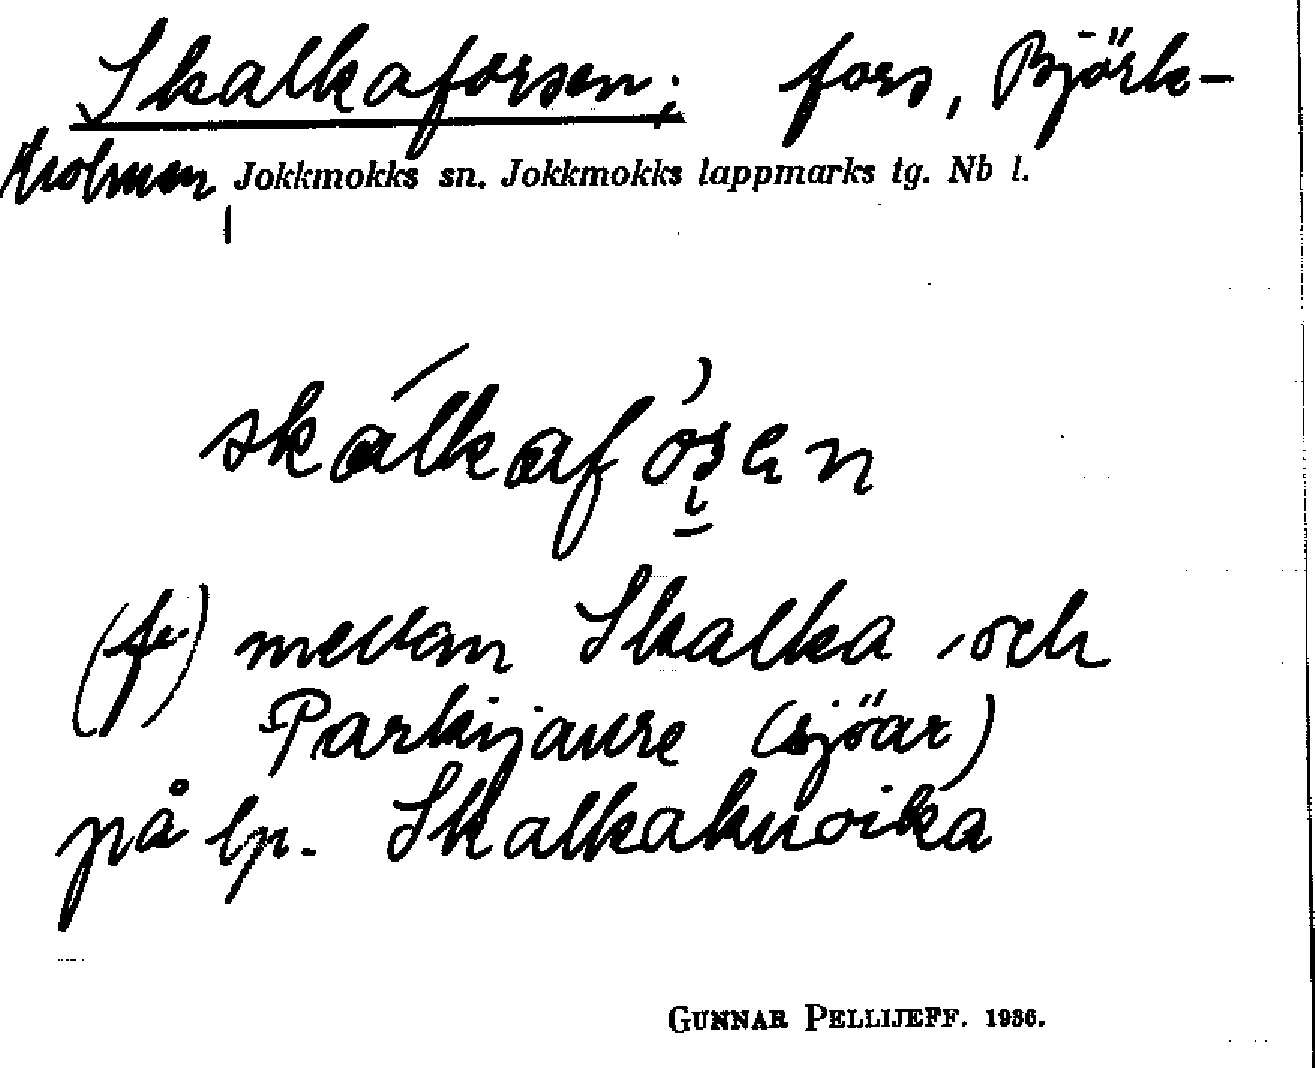 Skalkaforsen; fors, Björk-
holmen, Jokkmokks sn. Jokkmokks lappmarks tg. Nb l.
skálkafòsen
(fr) mellan Skalka och
Parkijaure (sjöar)
på lp. Skalkakuoika
GUNNAR PELLIJEFF. 1936.